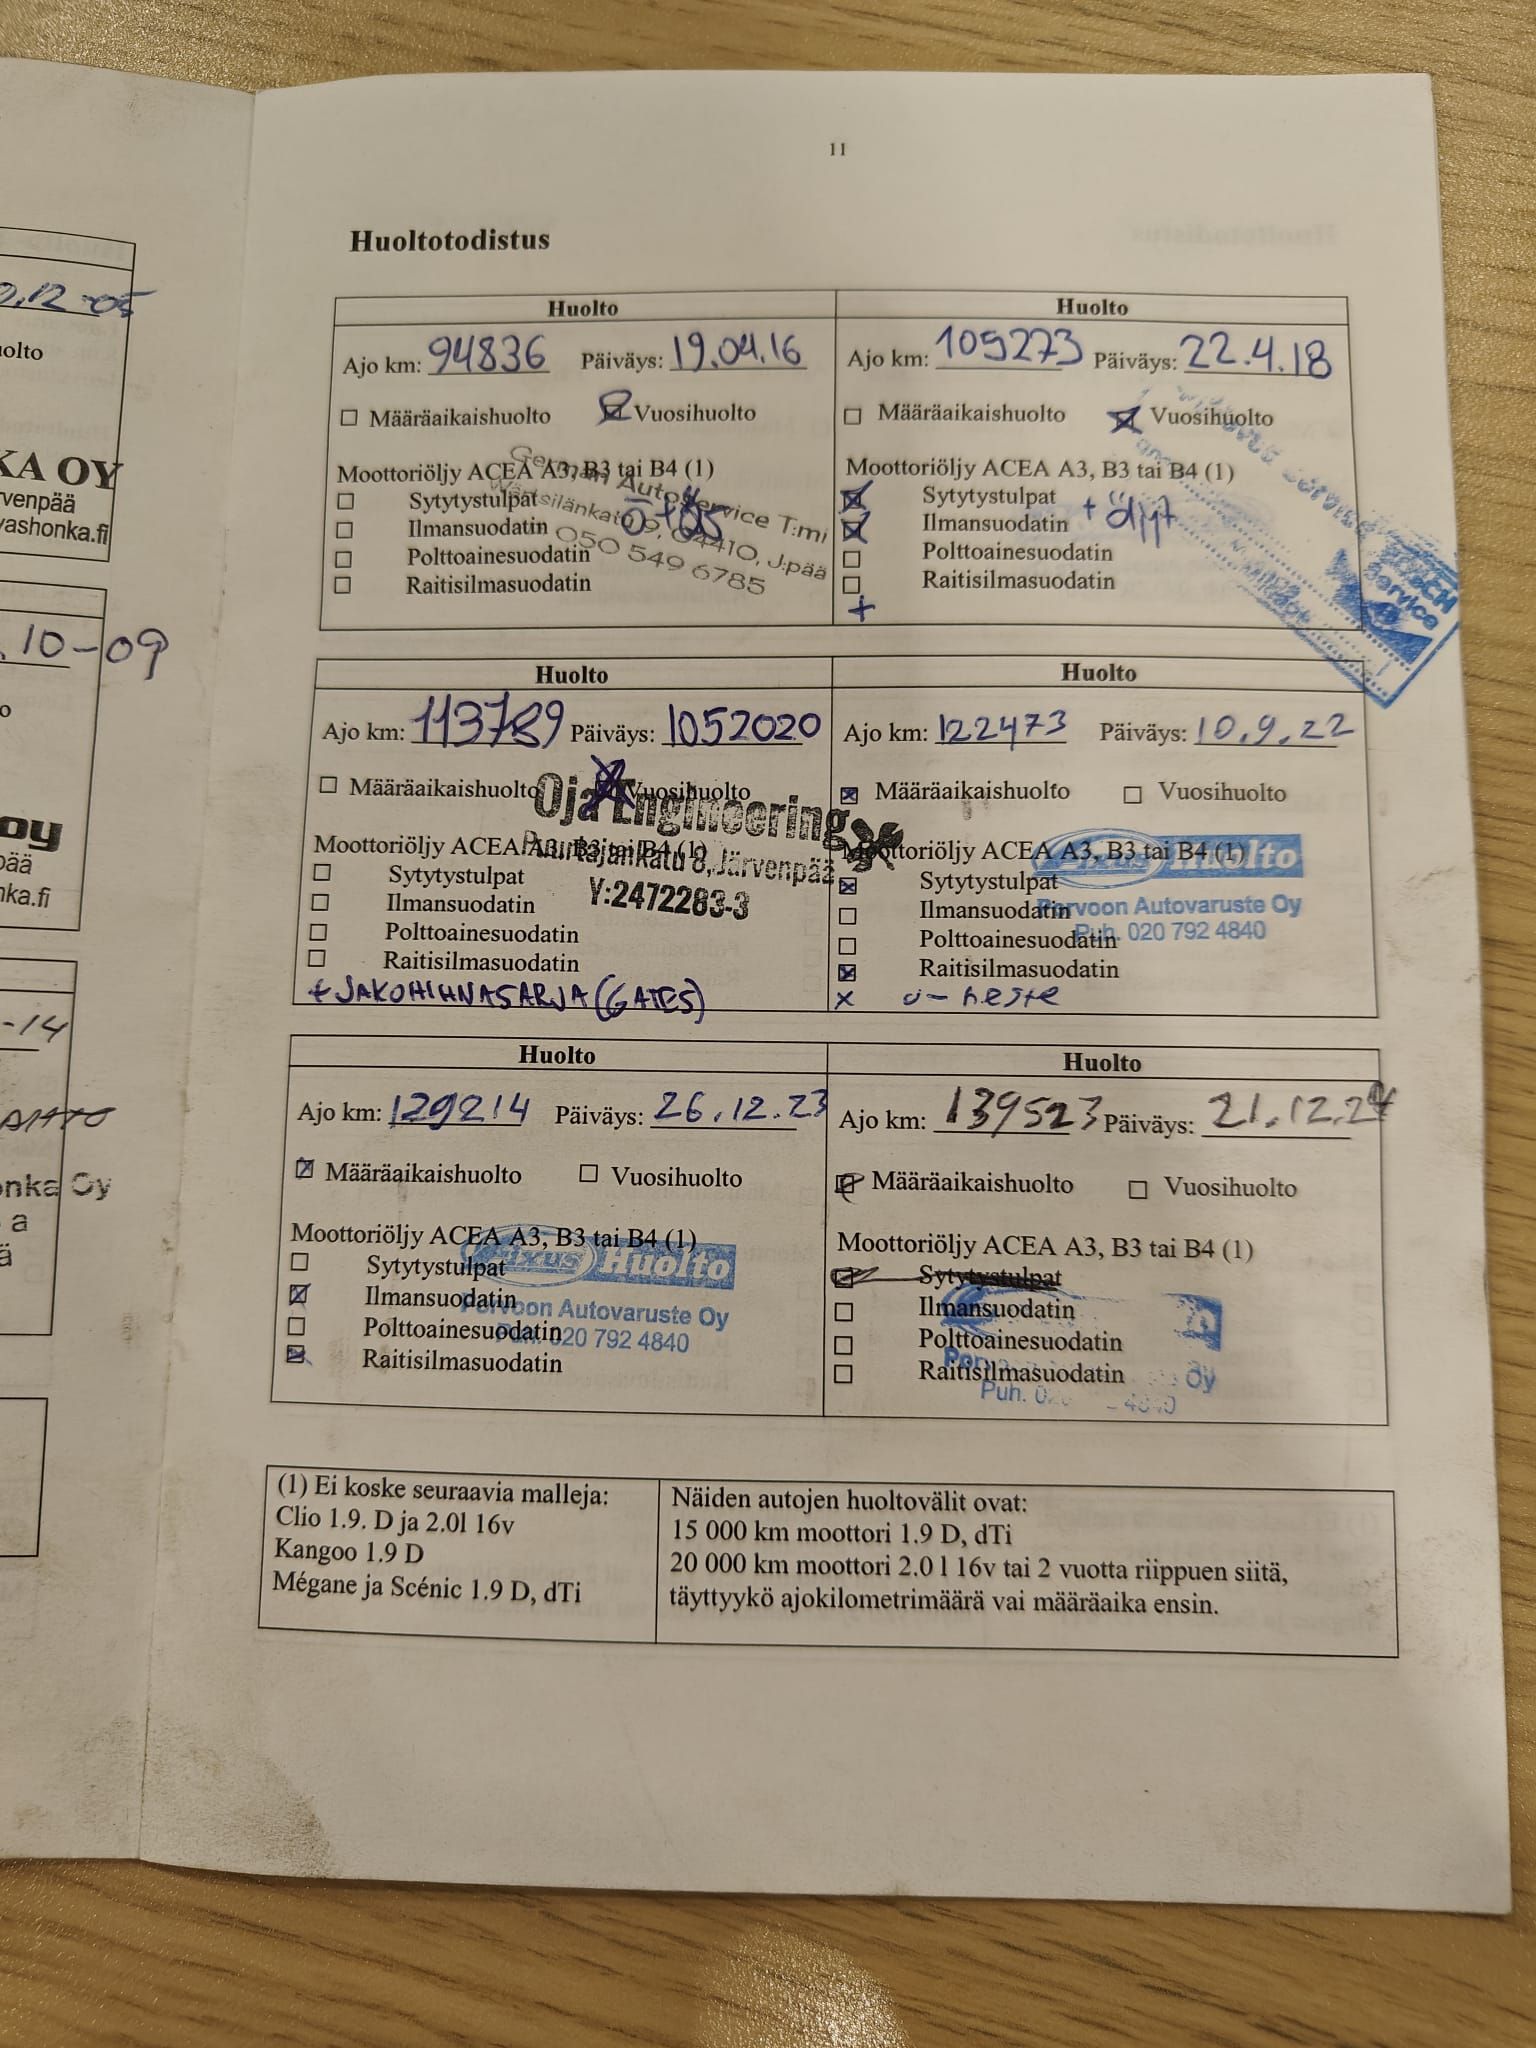 0.12-05
uolto
KA OY
rvenpää
vashonka.fi
. 10-09
o
oy
pää
nka.fi
-14
onka Oy
a
ä
11
Huoltotodistus
Huolto
Ajo km: 94836 Päiväys: 19.04.16
Määräaikaishuolto Vuosihuolto
Moottoriöljy ACEA A3, B3 tai B4 (1)
Sytytystulpat
Ilmansuodatin
Polttoainesuodatin
Raitisilmasuodatin
German Autoservice T:mi
Wärtsilänkatu 9, 04410, J:pää
050 549 6785
Huolto
Ajo km: 109273 Päiväys: 22.4.18
Määräaikaishuolto Vuosihuolto
Moottoriöljy ACEA A3, B3 tai B4 (1)
Sytytystulpat
Ilmansuodatin
Polttoainesuodatin
Raitisilmasuodatin
+
Service
Huolto
Ajo km: 113789 Päiväys: 1052020
Määräaikaishuolto Vuosihuolto
Moottoriöljy ACEA A3, B3 tai B4 (1)
Sytytystulpat
Ilmansuodatin
Polttoainesuodatin
Raitisilmasuodatin
+ JAKOHIHNASARJA (GATES)
Oja Engineering
8, Järvenpää
Y:2472283-3
Huolto
Ajo km: 122473 Päiväys: 10.9.22
Määräaikaishuolto Vuosihuolto
Moottoriöljy ACEA A3, B3 tai B4 (1)
Sytytystulpat
Ilmansuodatin
Polttoainesuodatin
Raitisilmasuodatin
x
Fixus Huolto
Porvoon Autovaruste Oy
Puh. 020 792 4840
Huolto
Ajo km: 129214 Päiväys: 26.12.23
Määräaikaishuolto Vuosihuolto
Moottoriöljy ACEA A3, B3 tai B4 (1)
Sytytystulpat
Ilmansuodatin
Polttoainesuodatin
Raitisilmasuodatin
Fixus Huolto
Porvoon Autovaruste Oy
Puh. 020 792 4840
Huolto
Ajo km: 139523 Päiväys: 21.12.24
Määräaikaishuolto Vuosihuolto
Moottoriöljy ACEA A3, B3 tai B4 (1)
Sytytystulpat
Ilmansuodatin
Polttoainesuodatin
Raitisilmasuodatin
Oy
Puh.
(1) Ei koske seuraavia malleja:
Clio 1.9. D ja 2.0l 16v
Kangoo 1.9 D
Mégane ja Scénic 1.9 D, dTi
Näiden autojen huoltovälit ovat:
15 000 km moottori 1.9 D, dTi
20 000 km moottori 2.0 l 16v tai 2 vuotta riippuen siitä,
täyttyykö ajokilometrimäärä vai määräaika ensin.